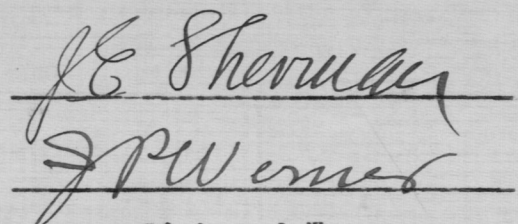 J E Sherman
J P Werner